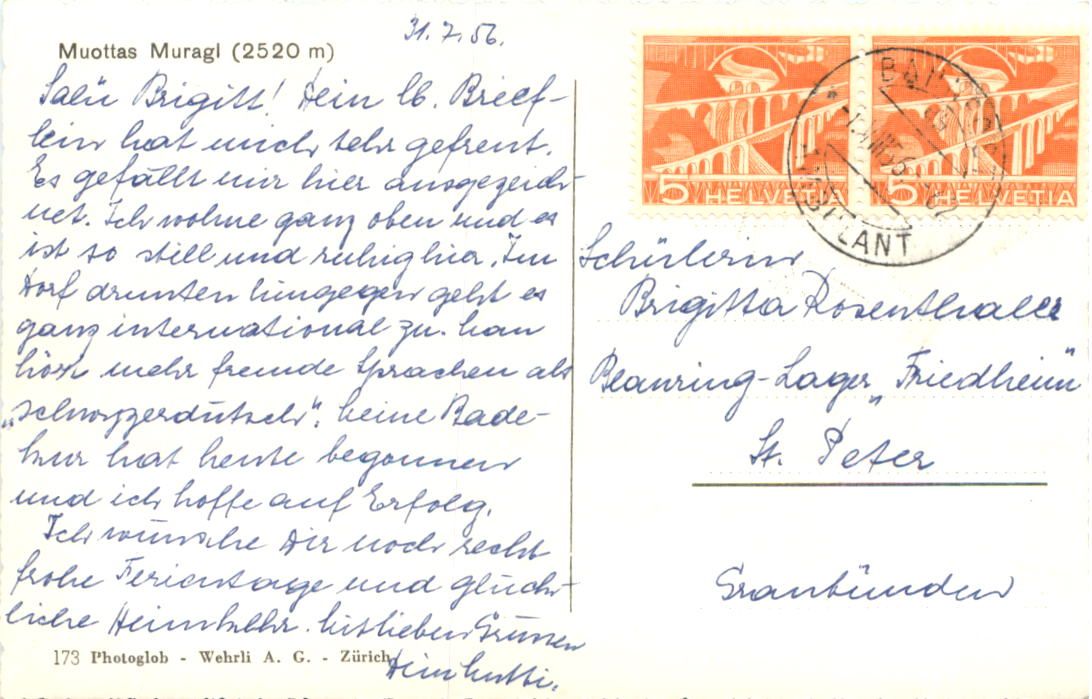 31.7.56.
Muottas Muragl (2520 m)
Salü Brigitt! Dein lb. Brief-
lein hat mich sehr gefreut.
Es gefällt mir hier ausgezeich-
net. Ich wohne ganz oben und es
ist so still und ruhig hier. Im
Dorf drunten hingegen geht es
ganz international zu. Man
hört mehr fremde Sprachen als
„schwyzerdütsch“. Meine Bade-
kur hat heute begonnen
und ich hoffe auf Erfolg.
Ich wünsche Dir noch recht
frohe Ferientage und glück-
liche Heimkehr. Mit lieben Grüssen
Dein Mutti.
173 Photoglob - Wehrli A. G. - Zürich
5 HELVETIA
5 HELVETIA
Schülerin
Brigitta Rosenthaler
Blauring-Lager „Friedheim“
St. Peter
Graubünden